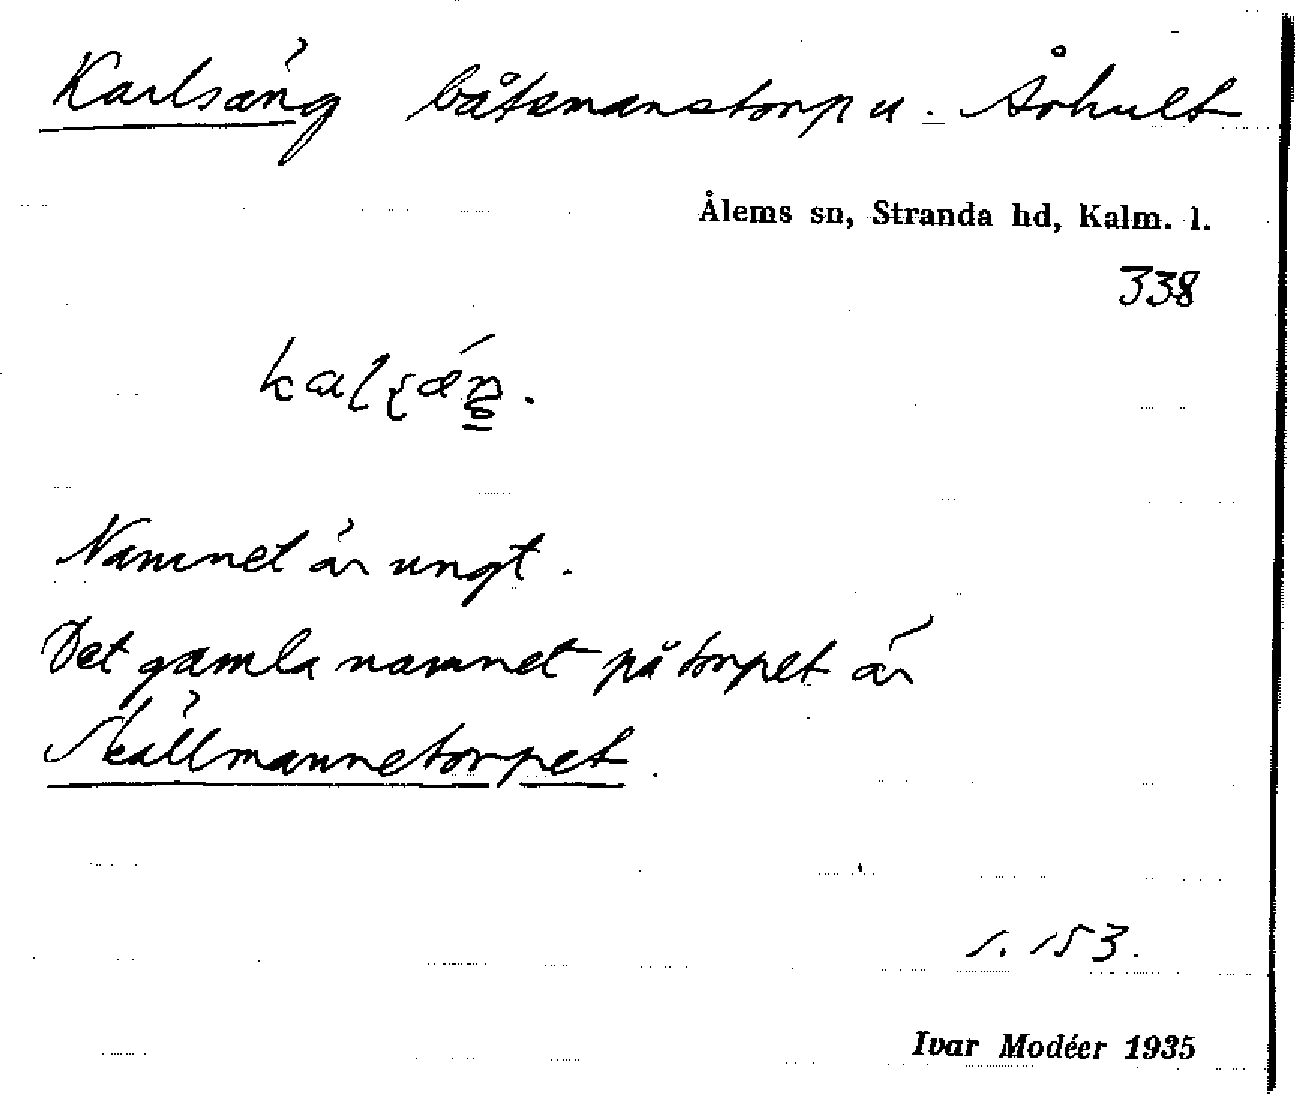 Karlsäng båtsmanstorp u. Århult
Ålems sn, Stranda hd, Kalm. l.
338
Namnet är ungt.
Det gamla namnet på torpet är
Skällmannetorpet.
s. 153.
Ivar Modéer 1935